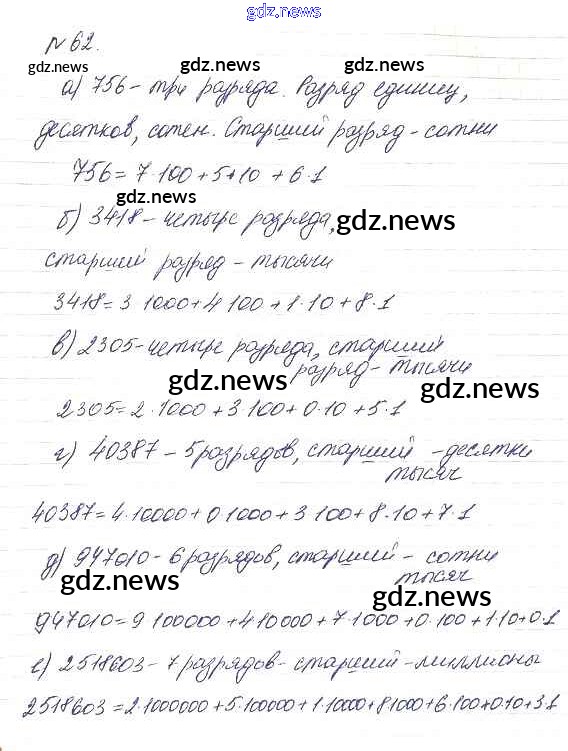 gdz.news
№ 62.
gdz.news gdz.news gdz.news
а) 756 - три разряда. Разряд единиц,
десятков, сотен. Старший разряд - сотни
756 = 7·100 + 5·10 + 6·1
gdz.news
б) 3418 - четыре разряда,
gdz.news
старший разряд - тысячи
3418 = 3·1000 + 4·100 + 1·10 + 8·1
в) 2305 - четыре разряда, старший
разряд - тысячи
gdz.news gdz.news
2305 = 2·1000 + 3·100 + 0·10 + 5·1
г) 40387 - 5 разрядов, старший - десятки
тысяч
40387 = 4·10000 + 0·1000 + 3·100 + 8·10 + 7·1
д) 947010 - 6 разрядов, старший - сотни
тысяч
gdz.news gdz.news
947010 = 9·100000 + 4·10000 + 7·1000 + 0·100 + 1·10 + 0·1
е) 2518603 - 7 разрядов - старший - миллионы
2518603 = 2·1000000 + 5·100000 + 1·10000 + 8·1000 + 6·100 + 0·10 + 3·1